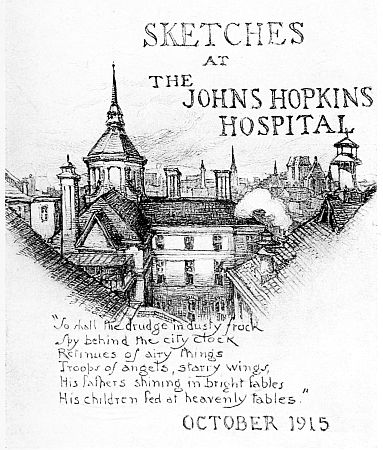 SKETCHES
AT
THE
JOHNS HOPKINS
HOSPITAL
"So shall the drudge in dusty frock
Spy behind the city clock
Retinues of airy things
Troops of angels, starry wings,
His fathers shining in bright fables
His children fed at heavenly tables."
OCTOBER 1915